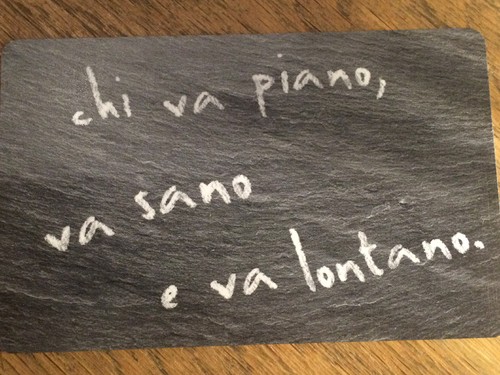 chi va piano,
va sano
e va lontano.